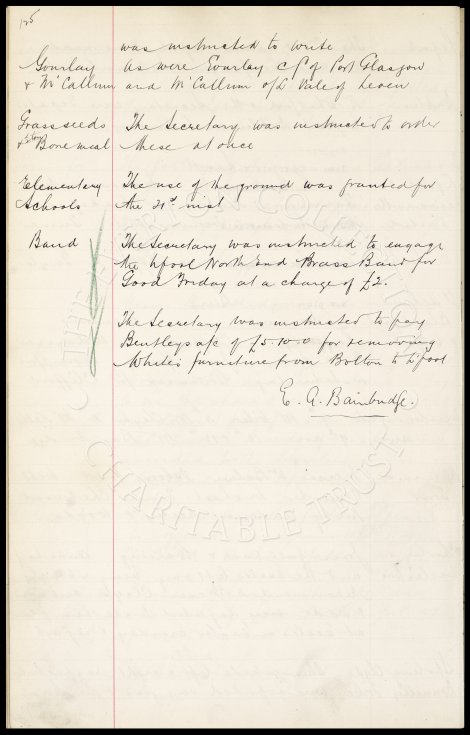 125
was instructed to write
Gourlay as were Gourlay c/f of Port Glasgow
& McCallum and McCallum o/L Vale of Leven
Grass seeds The Secretary was instructed to order
& Bone meal these at once
Elementary The use of the ground was granted for
Schools the 21st inst
Band The Secretary was instructed to engage
the L'pool North End Brass Band for
Good Friday at a charge of £2.
The Secretary was instructed to pay
Bentleys a/c of £5.10.0 for removing
White's furniture from Bolton to L'pool
E. A. Bainbridge.
THE EVERTON COLLECTION
CHARITABLE TRUST